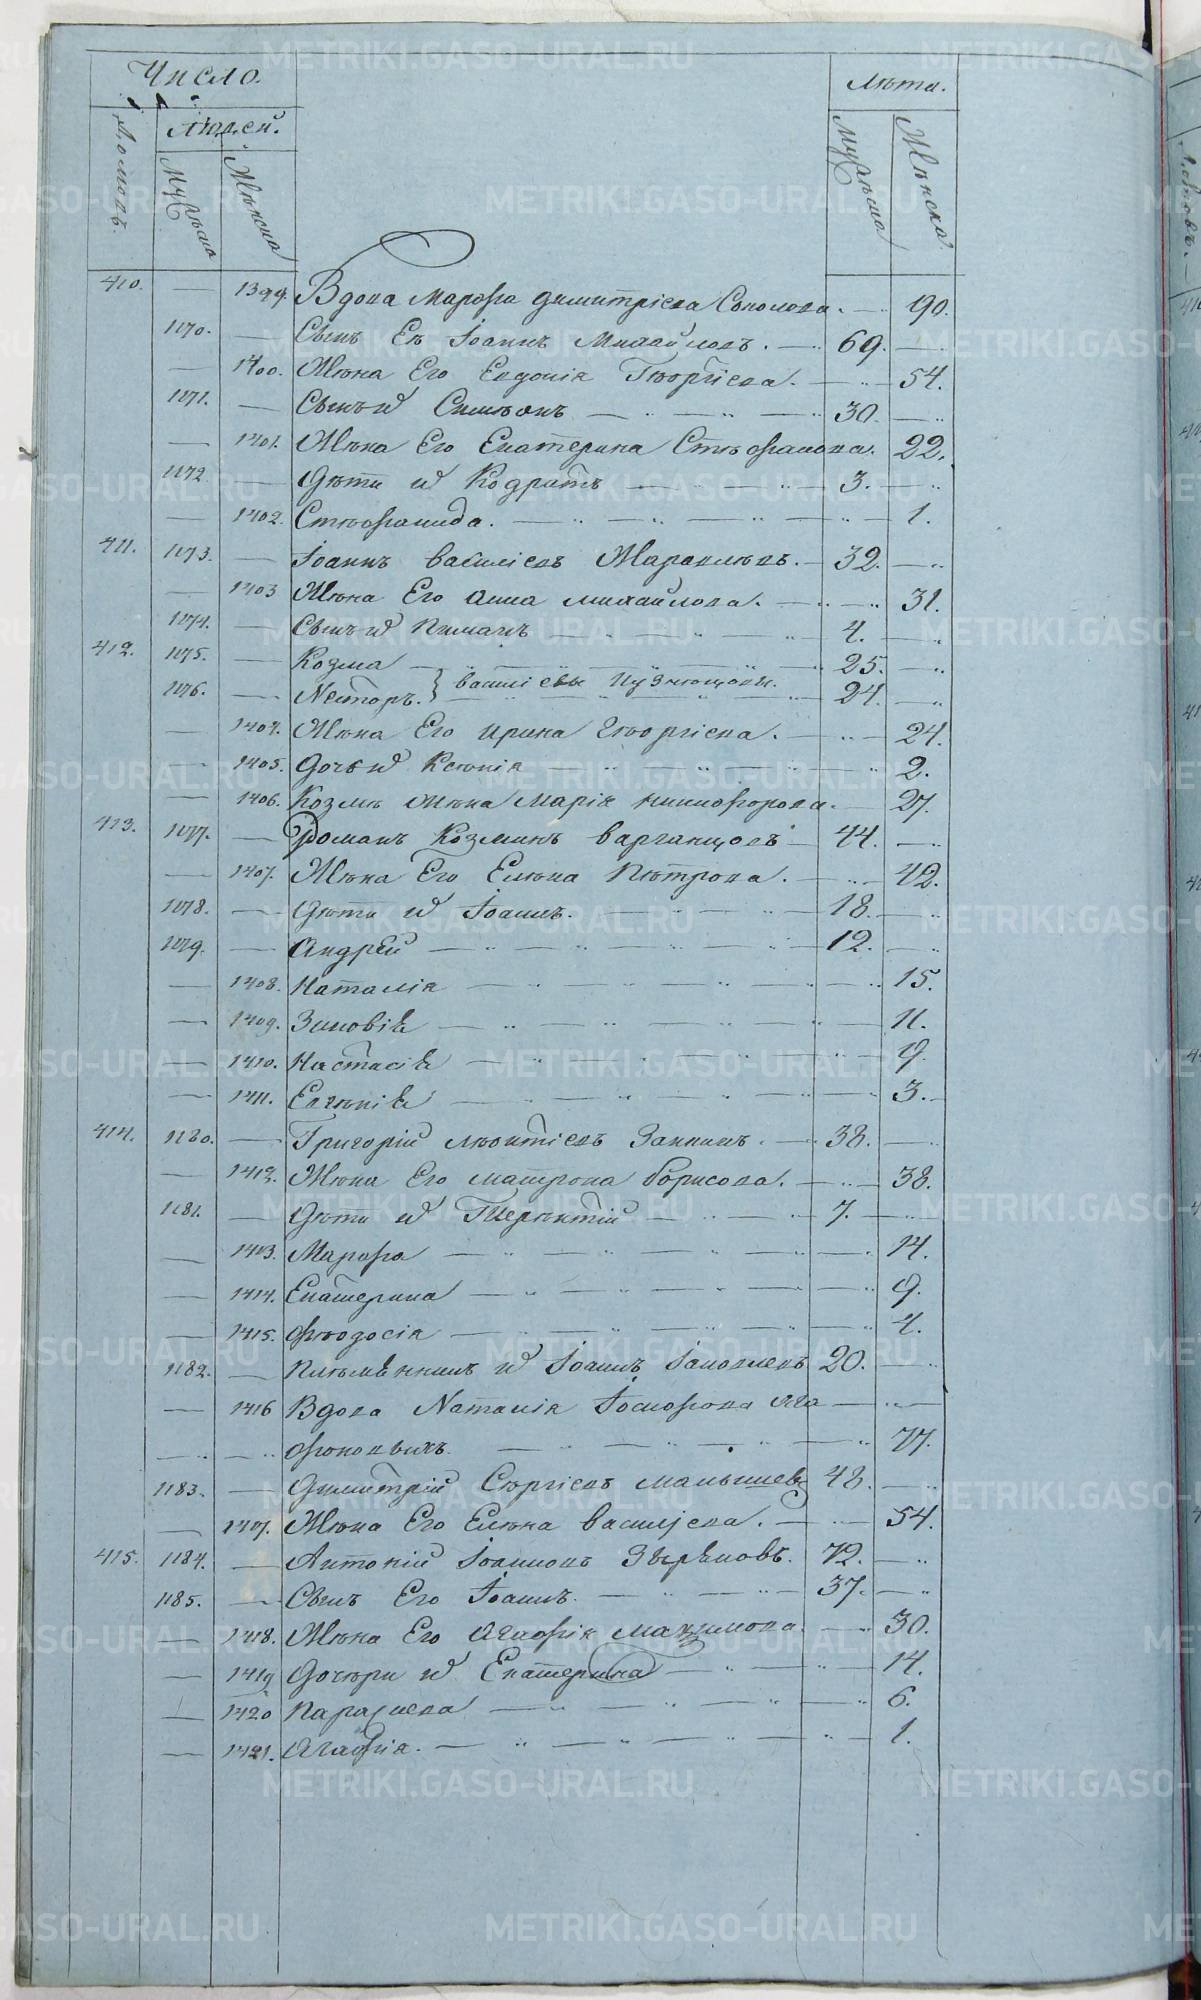 Число.
Лѣта.
Домовъ.
Людей.
Мужеска
Женска
Мужеска
Женска.
410. — 1399. Вдова Марфа Димитріева Соколова. — 90.
1170. — Сынъ Ея Іоаннъ Михайловъ. — 69. —
— 1400. Жена Его Евдокія Георгіева. — 54.
1171. — Сынъ и Симеонъ — 30. —
— 1401. Жена Его Екатерина Стефанова. 22.
1172. — Дѣти и Кодратъ — 3. —
— 1402. Стефанида. — 1.
411. 1173. — Іоаннъ Василіевъ — 32. —
— 1403 Жена Его Анна Михайлова. — 31.
1174. — Сынъ и — 4. —
412. 1175. — Козма — 25. —
1176. — Несторъ. } Василіевы — 24. —
— 1404. Жена Его Ирина Георгіева. — 24.
— 1405. Дочь и Ксенія — 2.
— 1406. Козмы жена Марія Никифорова. — 27.
413. 1177. — Романъ Козминъ Варганцовъ — 44. —
— 1407. Жена Его Елена Петрова. — 42.
1178. — Дѣти и Іоаннъ. — 18. —
1179. — Андрей — 12. —
— 1408. Наталія — 15.
— 1409. Зиновія — 11.
— 1410. Настасія — 9.
— 1411. Евгенія — 3.
414. 1180. — Григорій Леонтіевъ — 38. —
— 1412. Жена Его Матрона Борисова. — 38.
1181. — Дѣти и Терентій — 7. —
— 1413. Марфа — 14.
— 1414. Екатерина — 9.
— 1415. Феодосія — 4.
1182. — Племянникъ и Іоаннъ Іаковлевъ 20. —
— 1416 Вдова Наталія Іосифова Ага
фоновыхъ. — 77.
1183. — Димитрій Сергіевъ Малышевъ 48. —
— 1417. Жена Его Елена Василіева. — 54.
415. 1184. — Антоній Іоанновъ Звѣревовъ. 72. —
1185. — Сынъ Его Іоаннъ. — 37. —
— 1418. Жена Его Агафія Максимова. — 30.
— 1419 Дочери и Екатерина — 14.
— 1420 Параскева — 6.
— 1421. Агафія. — 1.
METRIKI.GASO-URAL.RU